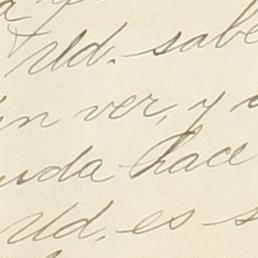 Ud. sabe
in ver, y
uda hace
Ud. es s